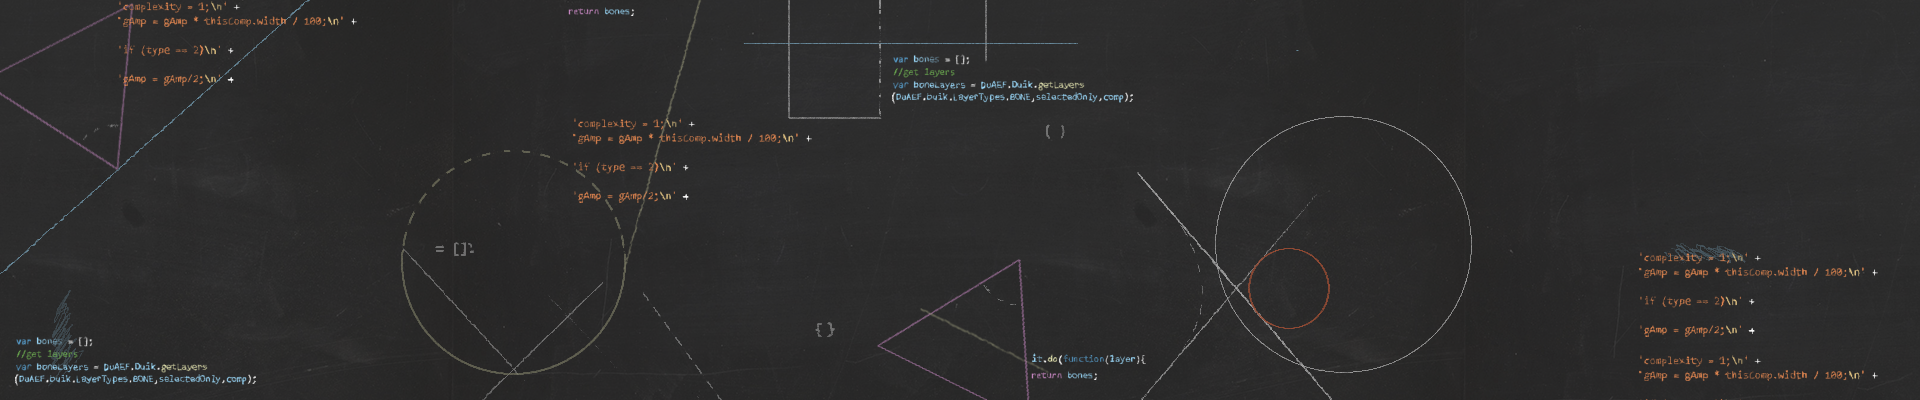 'complexity = 1;\n' +
'gAmp = gAmp * thisComp.width / 100;\n' +
'if (type == 2)\n' +
'gAmp = gAmp/2;\n' +
var bones = [];
//get layers
var boneLayers = DuAEF.Duik.getLayers
(DuAEF.Duik.LayerTypes.BONE,selectedOnly,comp);
= [];
return bones;
'complexity = 1;\n' +
'gAmp = gAmp * thisComp.width / 100;\n' +
'if (type == 2)\n' +
'gAmp = gAmp/2;\n' +
var bones = [];
//get layers
var boneLayers = DuAEF.Duik.getLayers
(DuAEF.Duik.LayerTypes.BONE,selectedOnly,comp);
( )
{}
it.do(function(layer){
return bones;
'complexity = 1;\n' +
'gAmp = gAmp * thisComp.width / 100;\n' +
'if (type == 2)\n' +
'gAmp = gAmp/2;\n' +
'complexity = 1;\n' +
'gAmp = gAmp * thisComp.width / 100;\n' +